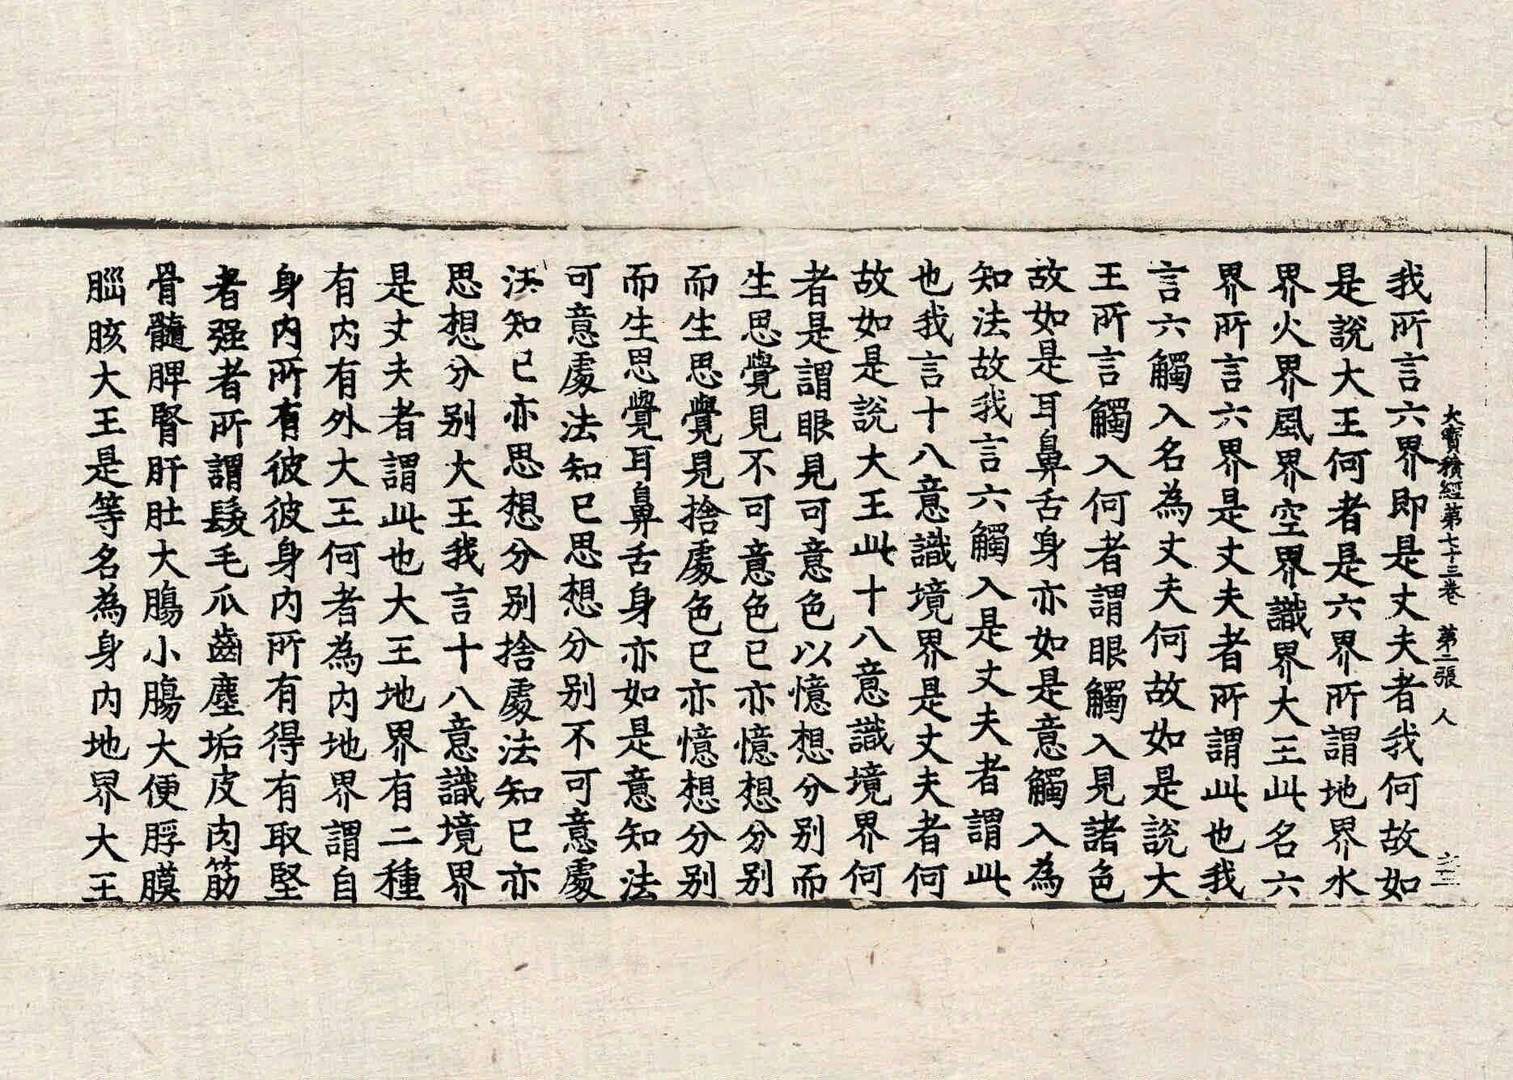 大寶積經第七十三卷　第二張　人
我所言六界即是丈夫者我何故如
是說大王何者是六界所謂地界水
界火界風界空界識界大王此名六
界所言六界是丈夫者所謂此也我
言六觸入名為丈夫何故如是說大
王所言觸入何者謂眼觸入見諸色
故如是耳鼻舌身亦如是意觸入為
知法故我言六觸入是丈夫者謂此
也我言十八意識境界是丈夫者何
故如是說大王此十八意識境界何
者是謂眼見可意色以憶想分别而
生思覺見不可意色已亦憶想分别
而生思覺見捨處色已亦憶想分别
而生思覺耳鼻舌身亦如是意知法
可意處法知已思想分别不可意處
法知已亦思想分别捨處法知已亦
思想分别大王我言十八意識境界
是丈夫者謂此也大王地界有二種
有内有外大王何者為内地界謂自
身内所有彼彼身内所有得有取堅
者强者所謂髮毛爪齒塵垢皮肉筋
骨髓脾腎肝肚大腸小腸大便脬膜
腦胲大王是等名為身内地界大王